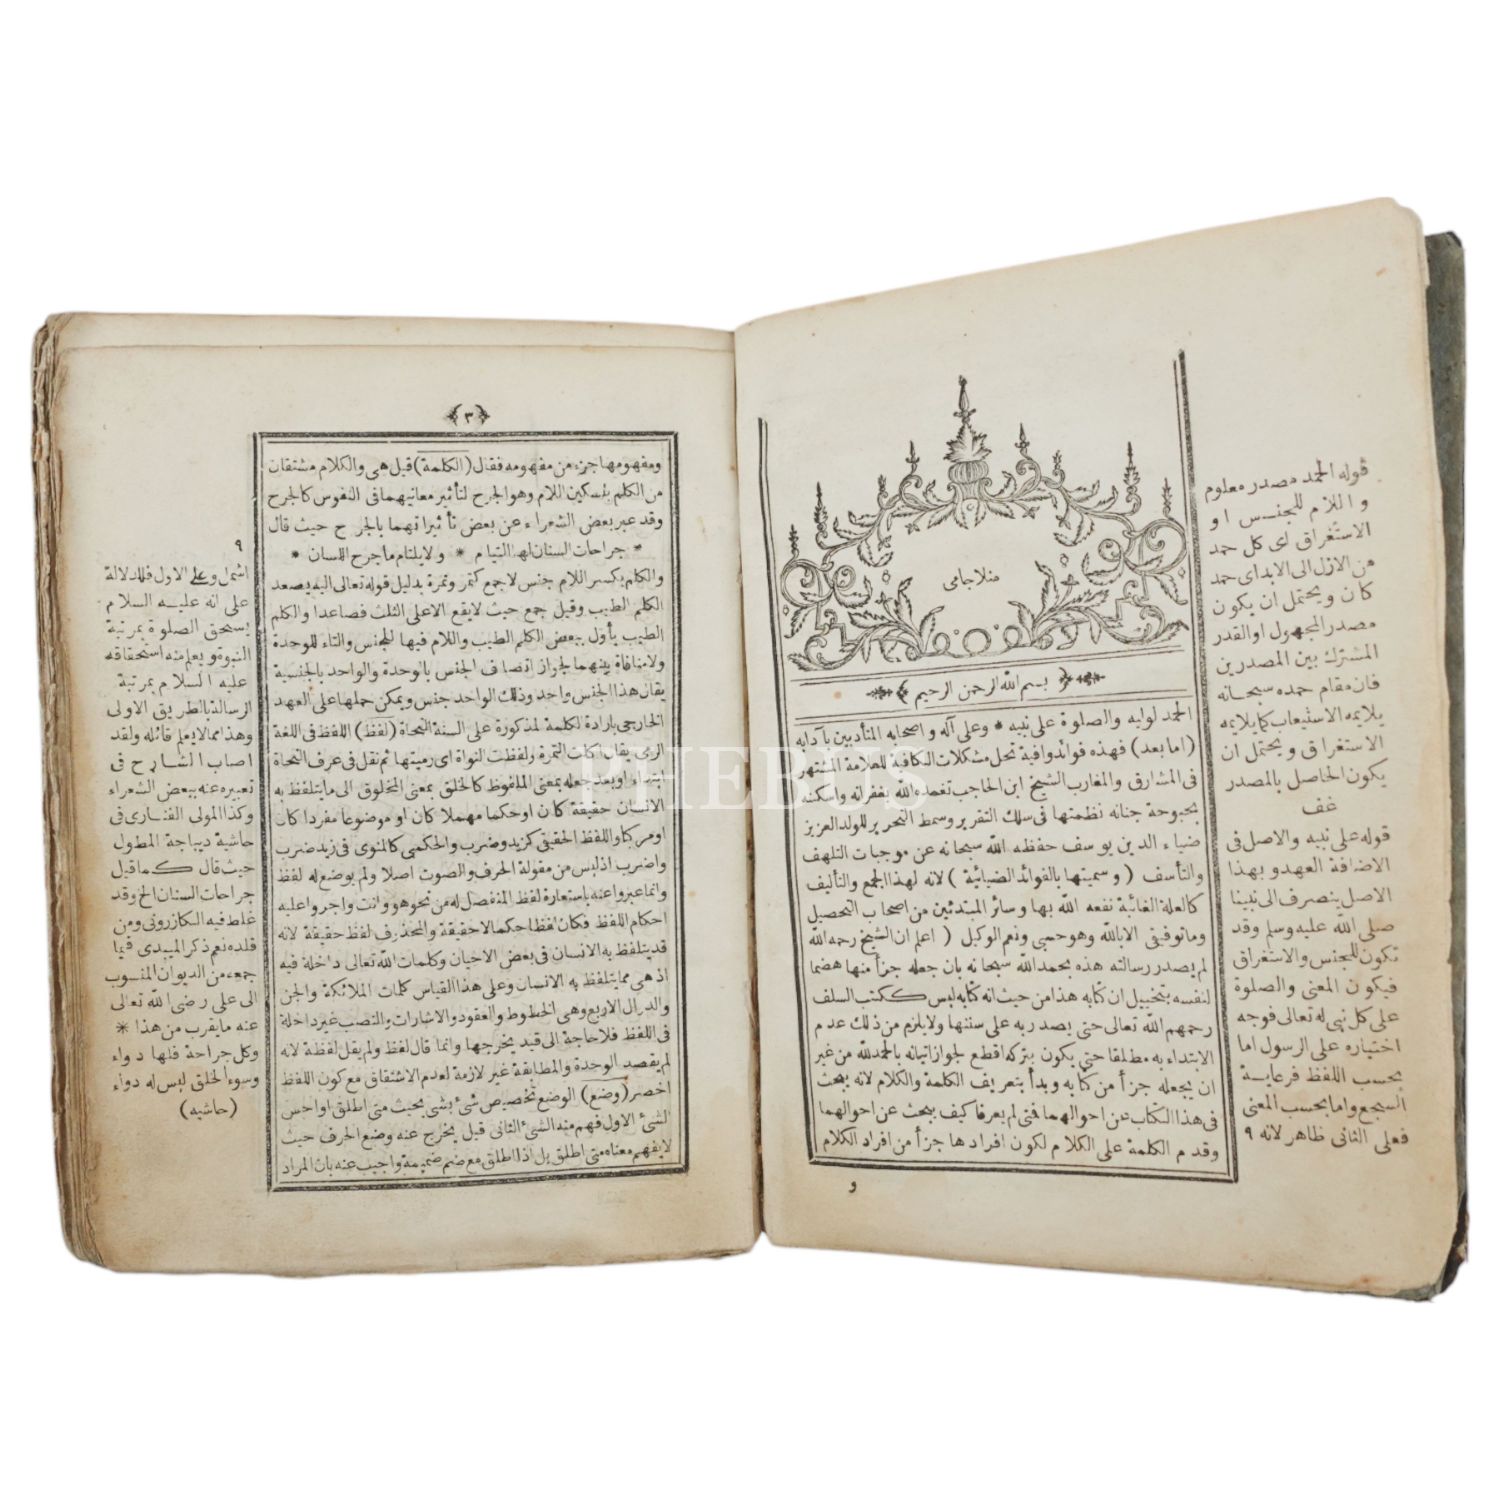 منلاجامى
بسم الله الرحمن الرحيم
الحمد لوليه والصلوة على نبيه * وعلى آله واصحابه المتأدبين بآدابه
(اما بعد) فهذه فوائد وافية تحل مشكلات الكافية للعلامة المشتهر
فى المشارق والمغارب الشيخ ابن الحاجب تغمده الله بغفرانه واسكنه
بحبوحة جنانه نظمتها فى سلك التقرير وسمط التحرير للولد العزيز
ضياء الدين يوسف حفظه الله سبحانه عن موجبات التلهف
والتأسف (وسميتها بالفوائد الضيائية) لانه لهذا الجمع والتأليف
كالعلة الغائية نفعه الله بها وسائر المبتدئين من اصحاب التحصيل
وماتوفيقى الابالله وهو حسبى ونعم الوكيل (اعلم ان الشيخ رحمه الله
لم يصدر رسالته هذه بحمد الله سبحانه بان جعله جزأ منها هضما
لنفسه بتخييل ان كتابه هذا من حيث انه كتابه ليس ككتب السلف
رحمهم الله تعالى حتى يصدر به على سننها ولايلزم من ذلك عدم
الابتداء به مطلقا حتى يكون بتركه اقطع لجواز اتيانه بالحمدلله من غير
ان يجعله جزأ من كتابه وبدأ بتعريف الكلمة والكلام لانه يبحث
فى هذا الكتاب عن احوالهما فمتى لم يعرفا كيف يبحث عن احوالهما
وقدم الكلمة على الكلام لكون افرادها جزأ من افراد الكلام
و
قوله الحمد مصدر معلوم
واللام للجنس او
الاستغراق اى كل حمد
من الازل الى الابداى حمد
كان ويحتمل ان يكون
مصدر المجهول او القدر
المشترك بين المصدرين
فان مقام حمده سبحانه
يلايمه الاستيعاب كما يلايمه
الاستغراق ويحتمل ان
يكون الحاصل بالمصدر
غف
قوله على نبيه والاصل فى
الاضافة العهد وبهذا
الاصل ينصرف الى نبينا
صلى الله عليه وسلم وقد
تكون للجنس والاستغراق
فيكون المعنى والصلوة
على كل نبى له تعالى فوجه
اختياره على الرسول اما
بحسب اللفظ فرعاية
السجع واما بحسب المعنى
فعلى الثانى ظاهر لانه ٩
٣
ومفهومها جزء من مفهومه فقال (الكلمة) قيل هى والكلام مشتقان
من الكلم بتسكين اللام وهو الجرح لتأثير معانيهما فى النفوس كالجرح
وقد عبر بعض الشعراء عن بعض تأثيراتهما بالجرح حيث قال
* جراحات السنان لها التيام * ولايلتام ماجرح اللسان *
والكلم بكسر اللام جنس لاجمع كتمر وتمرة بدليل قوله تعالى اليه يصعد
الكلم الطيب وقيل جمع حيث لايقع الاعلى الثلث فصاعدا والكلم
الطيب يأول ببعض الكلم الطيب واللام فيها للجنس والتاء للوحدة
ولامنافاة بينهما لجواز اتصاف الجنس بالوحدة والواحد بالجنسية
يقال هذا الجنس واحد وذلك الواحد جنس ويمكن حملها على العهد
الخارجى بارادة لكلمة لمذكورة على السنة النحاة (لفظ) اللفظ فى اللغة
الرمى يقال اكلت التمرة ولفظت النواة اى رميتها ثم نقل فى عرف النحاة
ابتداء او بعد جعله بمعنى الملفوظ كالخلق بمعنى المخلوق الى مايتلفظ به
الانسان حقيقة كان اوحكما مهملا كان او موضوعا مفردا كان
او مركبا واللفظ الحقيقى كزيد وضرب والحكمى كالمنوى فى زيد ضرب
واضرب اذ ليس من مقولة الحرف والصوت اصلا ولم يوضع له لفظ
وانما عبروا عنه باستعارة لفظ المنفصل له من نحو هو وانت واجروا عليه
احكام اللفظ فكان لفظا حكما لاحقيقة والمحذوف لفظ حقيقة لانه
قديتلفظ به الانسان فى بعض الاحيان وكلمات الله تعالى داخلة فيه
اذ هى مما يتلفظ به الانسان وعلى هذا القياس كلمات الملائكة والجن
والدوال الاربع وهى الخطوط والعقود والاشارات والنصب غير داخلة
فى اللفظ فلاحاجة الى قيد يخرجها وانما قال لفظ ولم يقل لفظة لانه
لم يقصد الوحدة والمطابقة غير لازمة لعدم الاشتقاق مع كون اللفظ
اخصر (وضع) الوضع تخصيص شئ بشئ بحيث متى اطلق او احس
الشئ الاول فهم منه الشئ الثانى قيل يخرج عنه وضع الحرف حيث
لايفهم معناه متى اطلق بل اذا اطلق مع ضم ضميمة واجيب عنه بان المراد
٩
اشمل وعلى الاول فللدلالة
على انه عليه السلام
يستحق الصلوة بمرتبة
النبوة ويعلم منه استحقاقه
عليه السلام بمرتبة
الرسالة بالطريق الاولى
وهذا مما لايعلم قائله ولقد
اصاب الشارح فى
تعبيره عنه ببعض الشعراء
وكذا المولى الفنارى فى
حاشية ديباجة المطول
حيث قال كما قيل
جراحات السنان الخ وقد
غلط فيه الكازرونى ومن
قلده نعم ذكر الميبدى فيما
جمعه من الديوان المنسوب
الى على رضى الله تعالى
عنه مايقرب من هذا *
وكل جراحة فلها دواء
وسوء الخلق ليس له دواء
(حاشيه)
PHEBUS